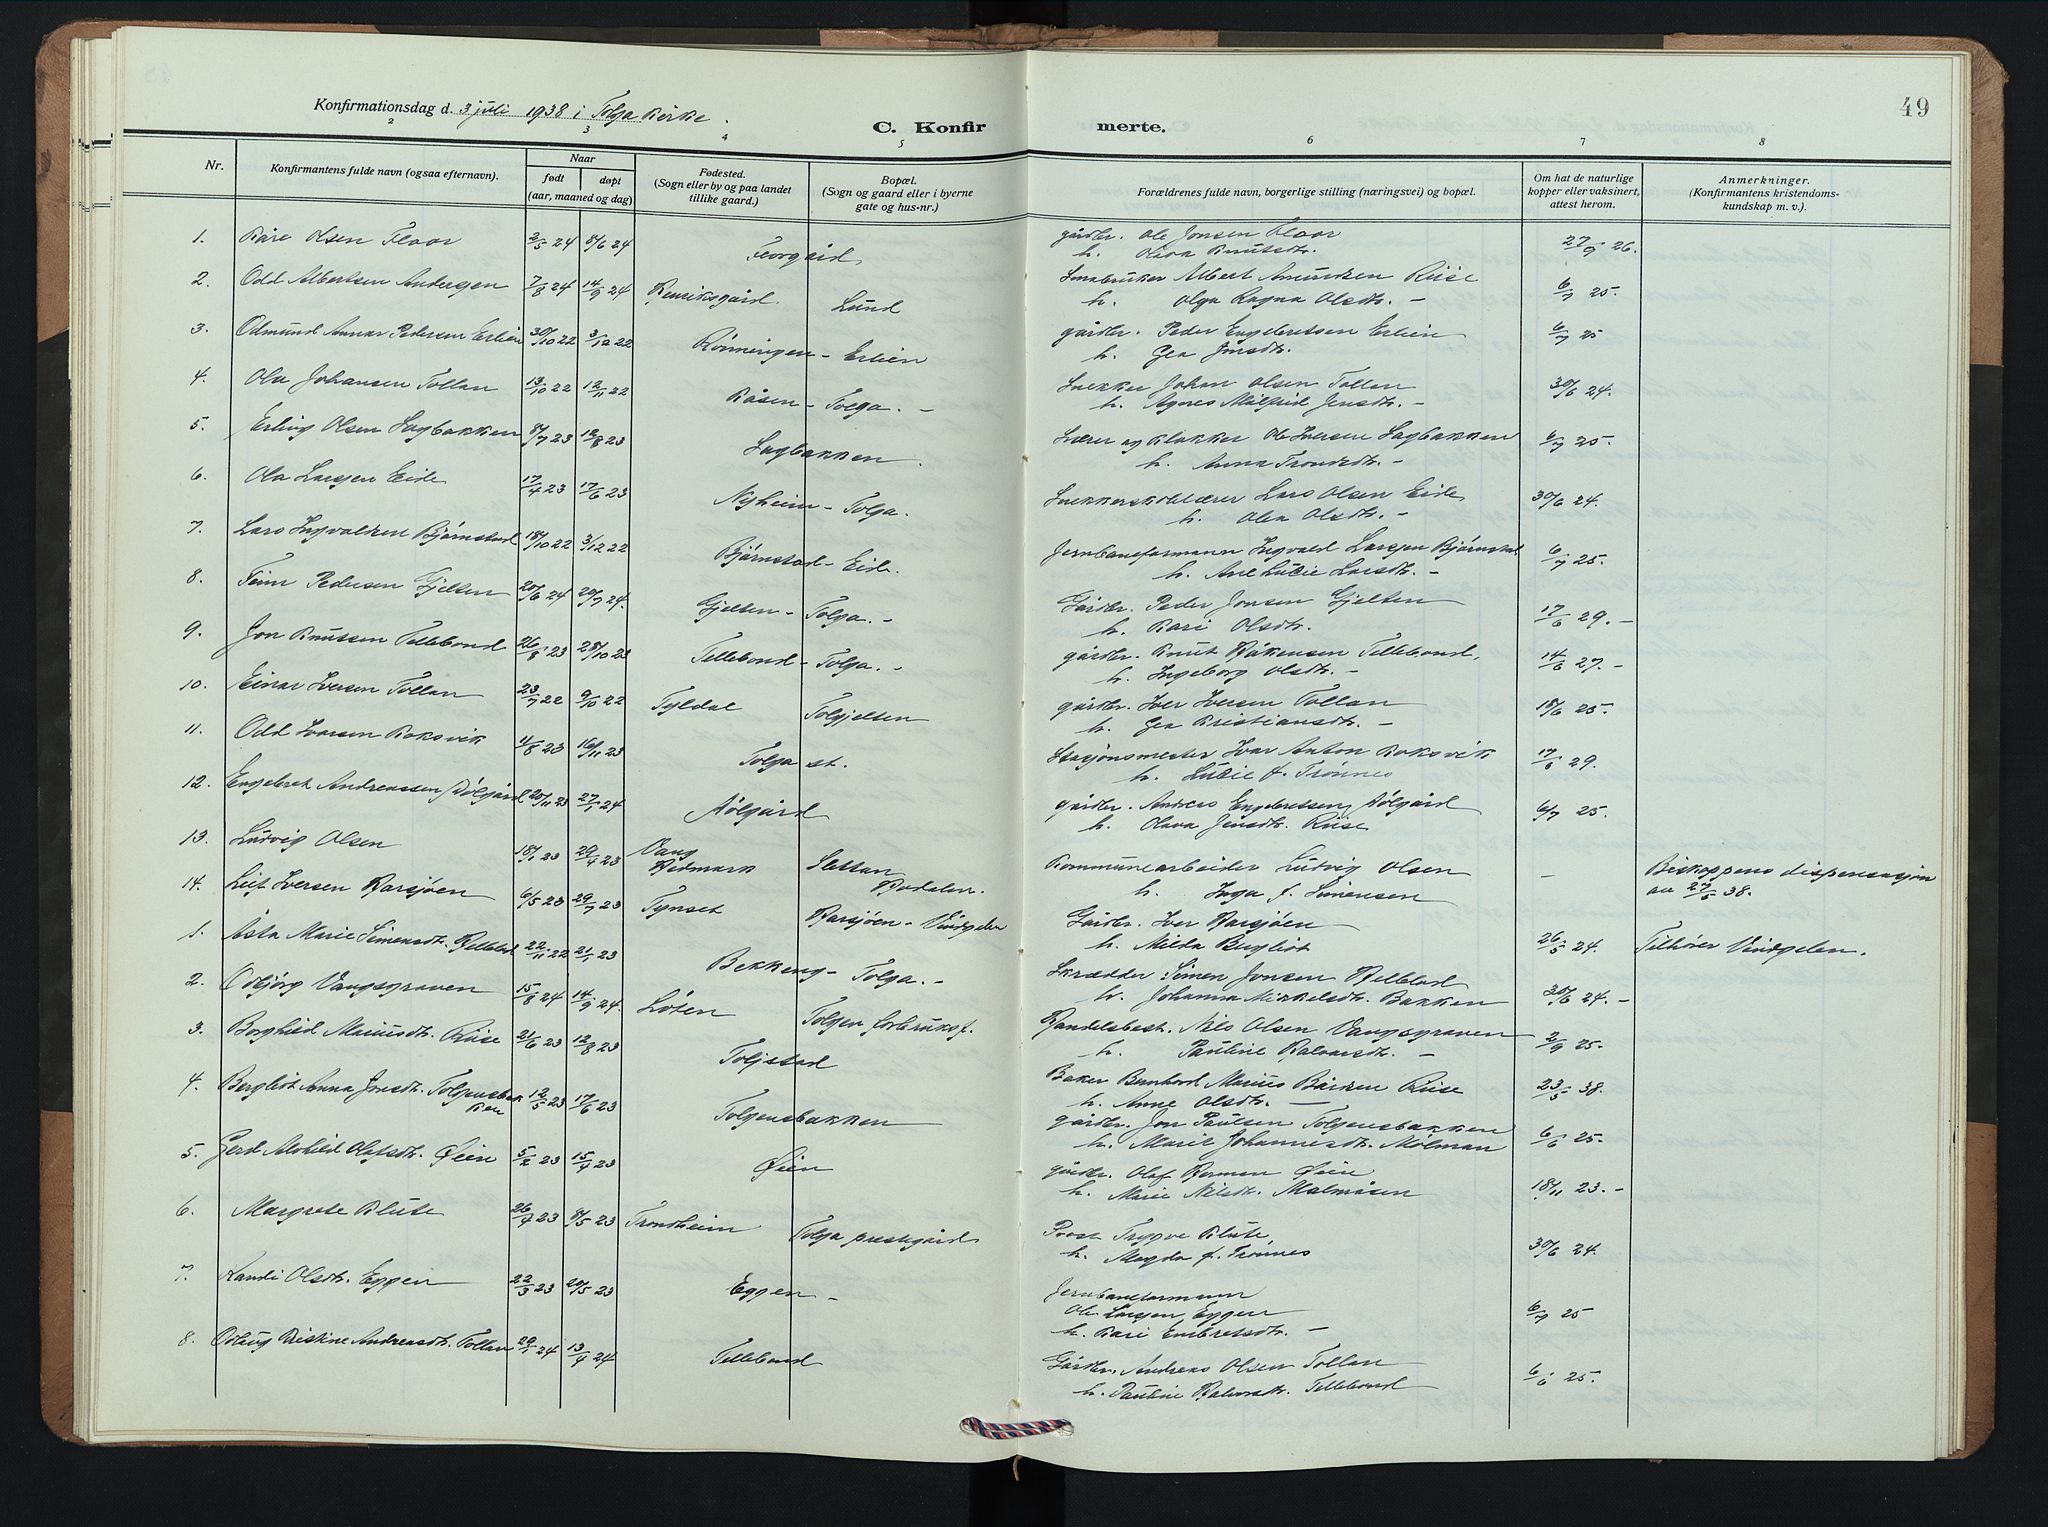 49
Konfirmationsdag d. 3 juli 1938 i Tolga Kirke.
C. Konfir merte.
2 3 4 5 6 7 8
Nr. Konfirmantens fulde navn (ogsaa efternavn). Naar født døpt (aar, maaned og dag) Fødested. (Sogn eller by og paa landet tillike gaard.) Bopæl. (Sogn og gaard eller i byerne gate og hus-nr.) Forældrenes fulde navn, borgerlige stilling (næringsvei) og bopæl. Om hat de naturlige kopper eller vaksinert, attest herom. Anmerkninger. (Konfirmantens kristendomskundskap m. v.).
1. Kåre Olsen Floor 2/5 24 8/6 24 gårdbr. Ole Jonsen Floor 27/9 26.
h. Oliva Knutsdtr.
2. Odd Albertsen Andersen 7/8 24 14/9 24 Henriksgård Lund Småbruker Albert Amundsen Riise 6/7 25.
h. Olga Ragna Olsdtr. –
3. Odmund Annar Pedersen Erlien 30/10 22 3/12 22 Rønningen – Erlien gårdbr. Peder Engebretsen Erlien 6/7 25
h. Gea Jonsdtr.
4. Ola Johansen Tollan 13/10 22 12/11 22 Råsen – Tolga. – Snekker Johan Olsen Tollan 30/6 24.
h. Agnes Målfrid Jensdtr. –
5. Erling Olsen Sagbakken 8/7 23 12/8 23 Sagbakken. Lærer og klokker Ole Iversen Sagbakken 6/7 25.
h. Anna Trondsdtr. –
6. Ola Larsen Eide 17/4 23 17/6 23 Nyheim – Tolga. Snekkerskolelærer Lars Olsen Eide 30/6 24.
h. Olea Olsdtr. –
7. Lars Ingvaldsen Bjørnstad 18/10 22 3/12 22 Bjørnstad – Eide. Jernbaneformann Ingvald Larsen Bjørnstad 6/7 25.
h. Ane Lucie Larsdtr. –
8. Pedersen Gjelten 20/6 24 20/7 24. Gjelten – Tolga. – Gårdbr. Peder Jonsen Gjelten 17/6 29. –
h. Kari Olsdtr.
9. Jon Knutsen Tellebond 26/8 23 28/10 23 Tellebond – Tolga. – gårdbr. Knut Håkensen Tellebond, 14/6 27. –
h. Ingeborg Olsdtr. –
10. Einar Iversen Tollan 23/7 22 9/10 22 Tyldal Tolgjelten gårdbr. Iver Iversen Tollan 18/6 25.
h. Gea Kristiansdtr. –
11. Odd Ivarsen Roksvik 4/8 23 16/11 23 Tolga st. Stasjonsmester Ivar Anton Roksvik 17/6 29.
h. Lucie f. Trønnes
12. Engebret Andreassen Dølgård 20/11 23 27/1 24 gårdbr. Andreas Engebretsen 6/7 25.
h. Olava Jensdtr. Riise
13. Ludvig Olsen 18/1 23 29/4 23 Vang Hedmark Slettan Hodalen. Kommunearbeider Ludvig Olsen – Biskoppens dispensasjon av 27/5 38.
h. Inga f. Simensen
14. Leif Iversen Barsjøen 6/5 23 29/7 23 Tynset Barsjøen – Vingelen Gårdbr. Iver Barsjøen 26/5 24. Tilhører Vingelen.
h. Milda Bergliot
1. Åsta Marie Simensdtr. Hellelad 22/11 22 21/1 23 Bekkeng – Tolga. – Skrædder Simen Jonsen Hellelad 30/6 24. –
h. Johanna Mikkelsdtr. Bakken
2. Odbjörg Vangsgraven 15/8 24 14/9 24. Løten Tolgen forbruksf. Handelsbest. Nils Olsen Vangsgraven 2/9 25.
h. Pauline Halvorsdtr. –
3. Borghild Mariusdtr. Riise 21/6 23 12/8 23 Toljstad Baker Bernhard Marius Riise 23/5 38.
h. Anne Olsdtr. –
4. Bergliot Anna Jonsdtr. Tolgensbakken 12/5 23 17/6 23 Tolgensbakken gårdbr. Jon Paulsen Tolgensbakken 6/6 25.
h. Marie Johannesdtr. Molman
5. Gerd Alvhild Olafsdtr. Øien 5/2 23 15/4 23 Øien gårdbr. Olaf Herman Øien 18/11 23. –
h. Marie Nilsdtr. Malmåsen
6. Margrete Klute 26/4 23 8/5 23 Trondheim Tolga prestegård Prost Trygve Klute, 30/6 24.
h. Magda f. Trønnes
7. Randi Olsdtr. Eggen 22/3 23 20/5 23 Eggen – Jernbaneformann
Ole Larsen Eggen 6/7 25
h. Kari Embretsdtr. –
8. Oddny Kristine Andreasdtr. Tollan 29/1 24 13/4 24 Tellebond Gårdbr. Andreas Olsen Tollan 6/6 25.
h. Pauline Halvorsdtr. Tellebond